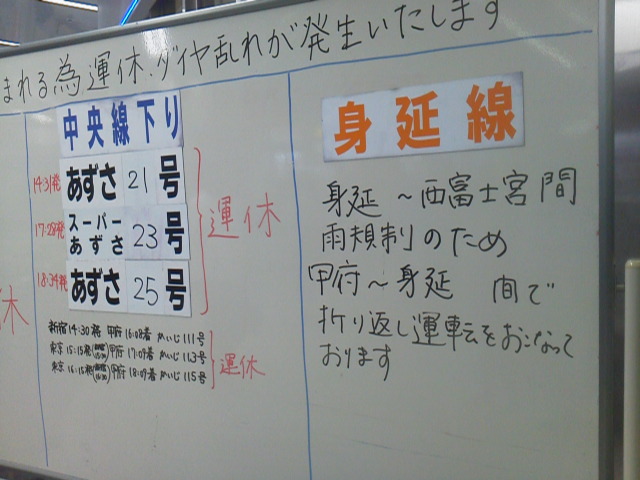 まれる為運休、ダイヤ乱れが発生いたします
中央線下り
14:31発 あずさ 21 号
17:28発 スーパーあずさ 23 号
18:34発 あずさ 25 号
運休
新宿14:30発 甲府16:08着 かいじ111号
東京15:15発 甲府17:09着 かいじ113号
東京16:15発 甲府18:09着 かいじ115号
運休
休
身延線
身延〜西富士宮間
雨規制のため
甲府〜身延 間で
折り返し運転をおこなって
おります